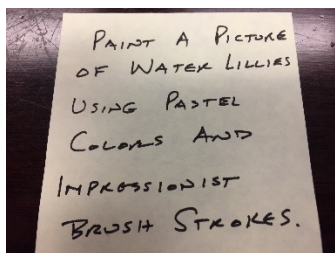 PAINT A PICTURE
OF WATER LILLIES
USING PASTEL
COLORS AND
IMPRESSIONIST
BRUSH STROKES.